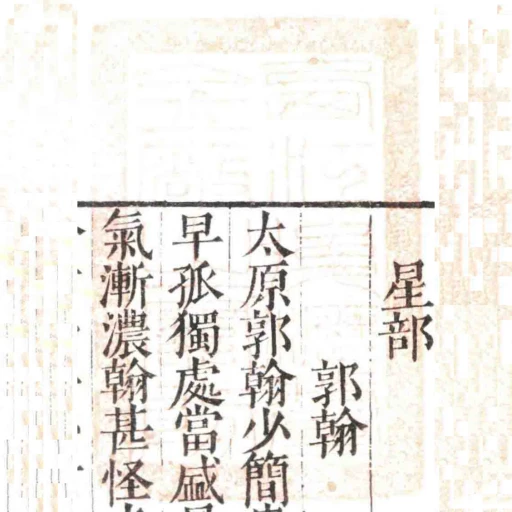 星部
郭翰
太原郭翰少簡
早孤獨處當盛
氣漸濃翰甚怪